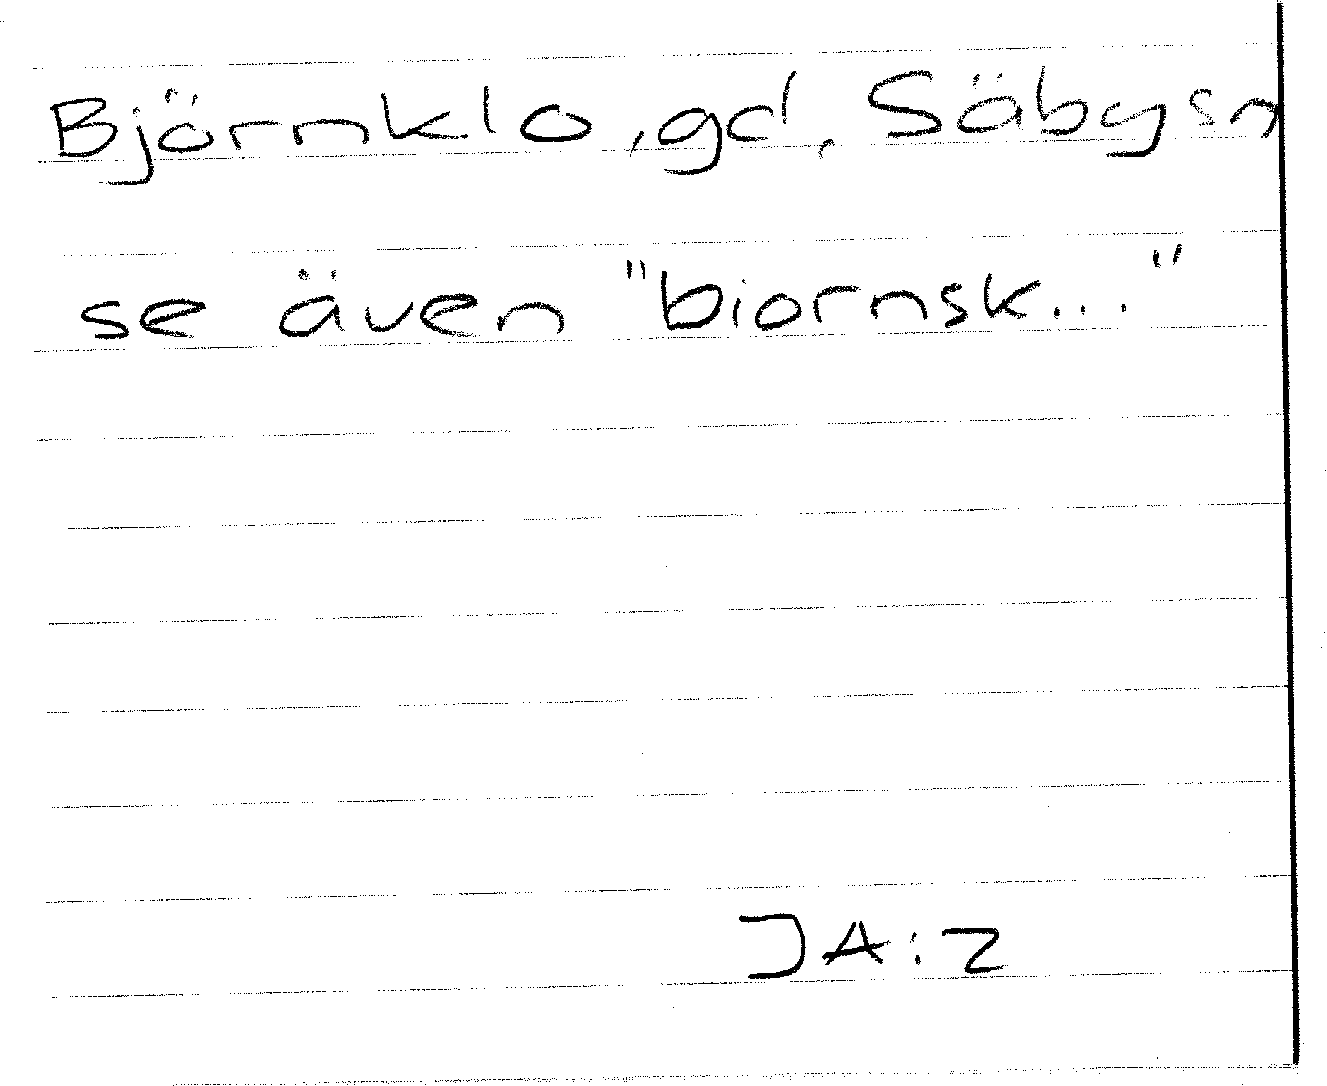 Björnklo, gd, Säbysn
se även "biornsk..."
JA:2